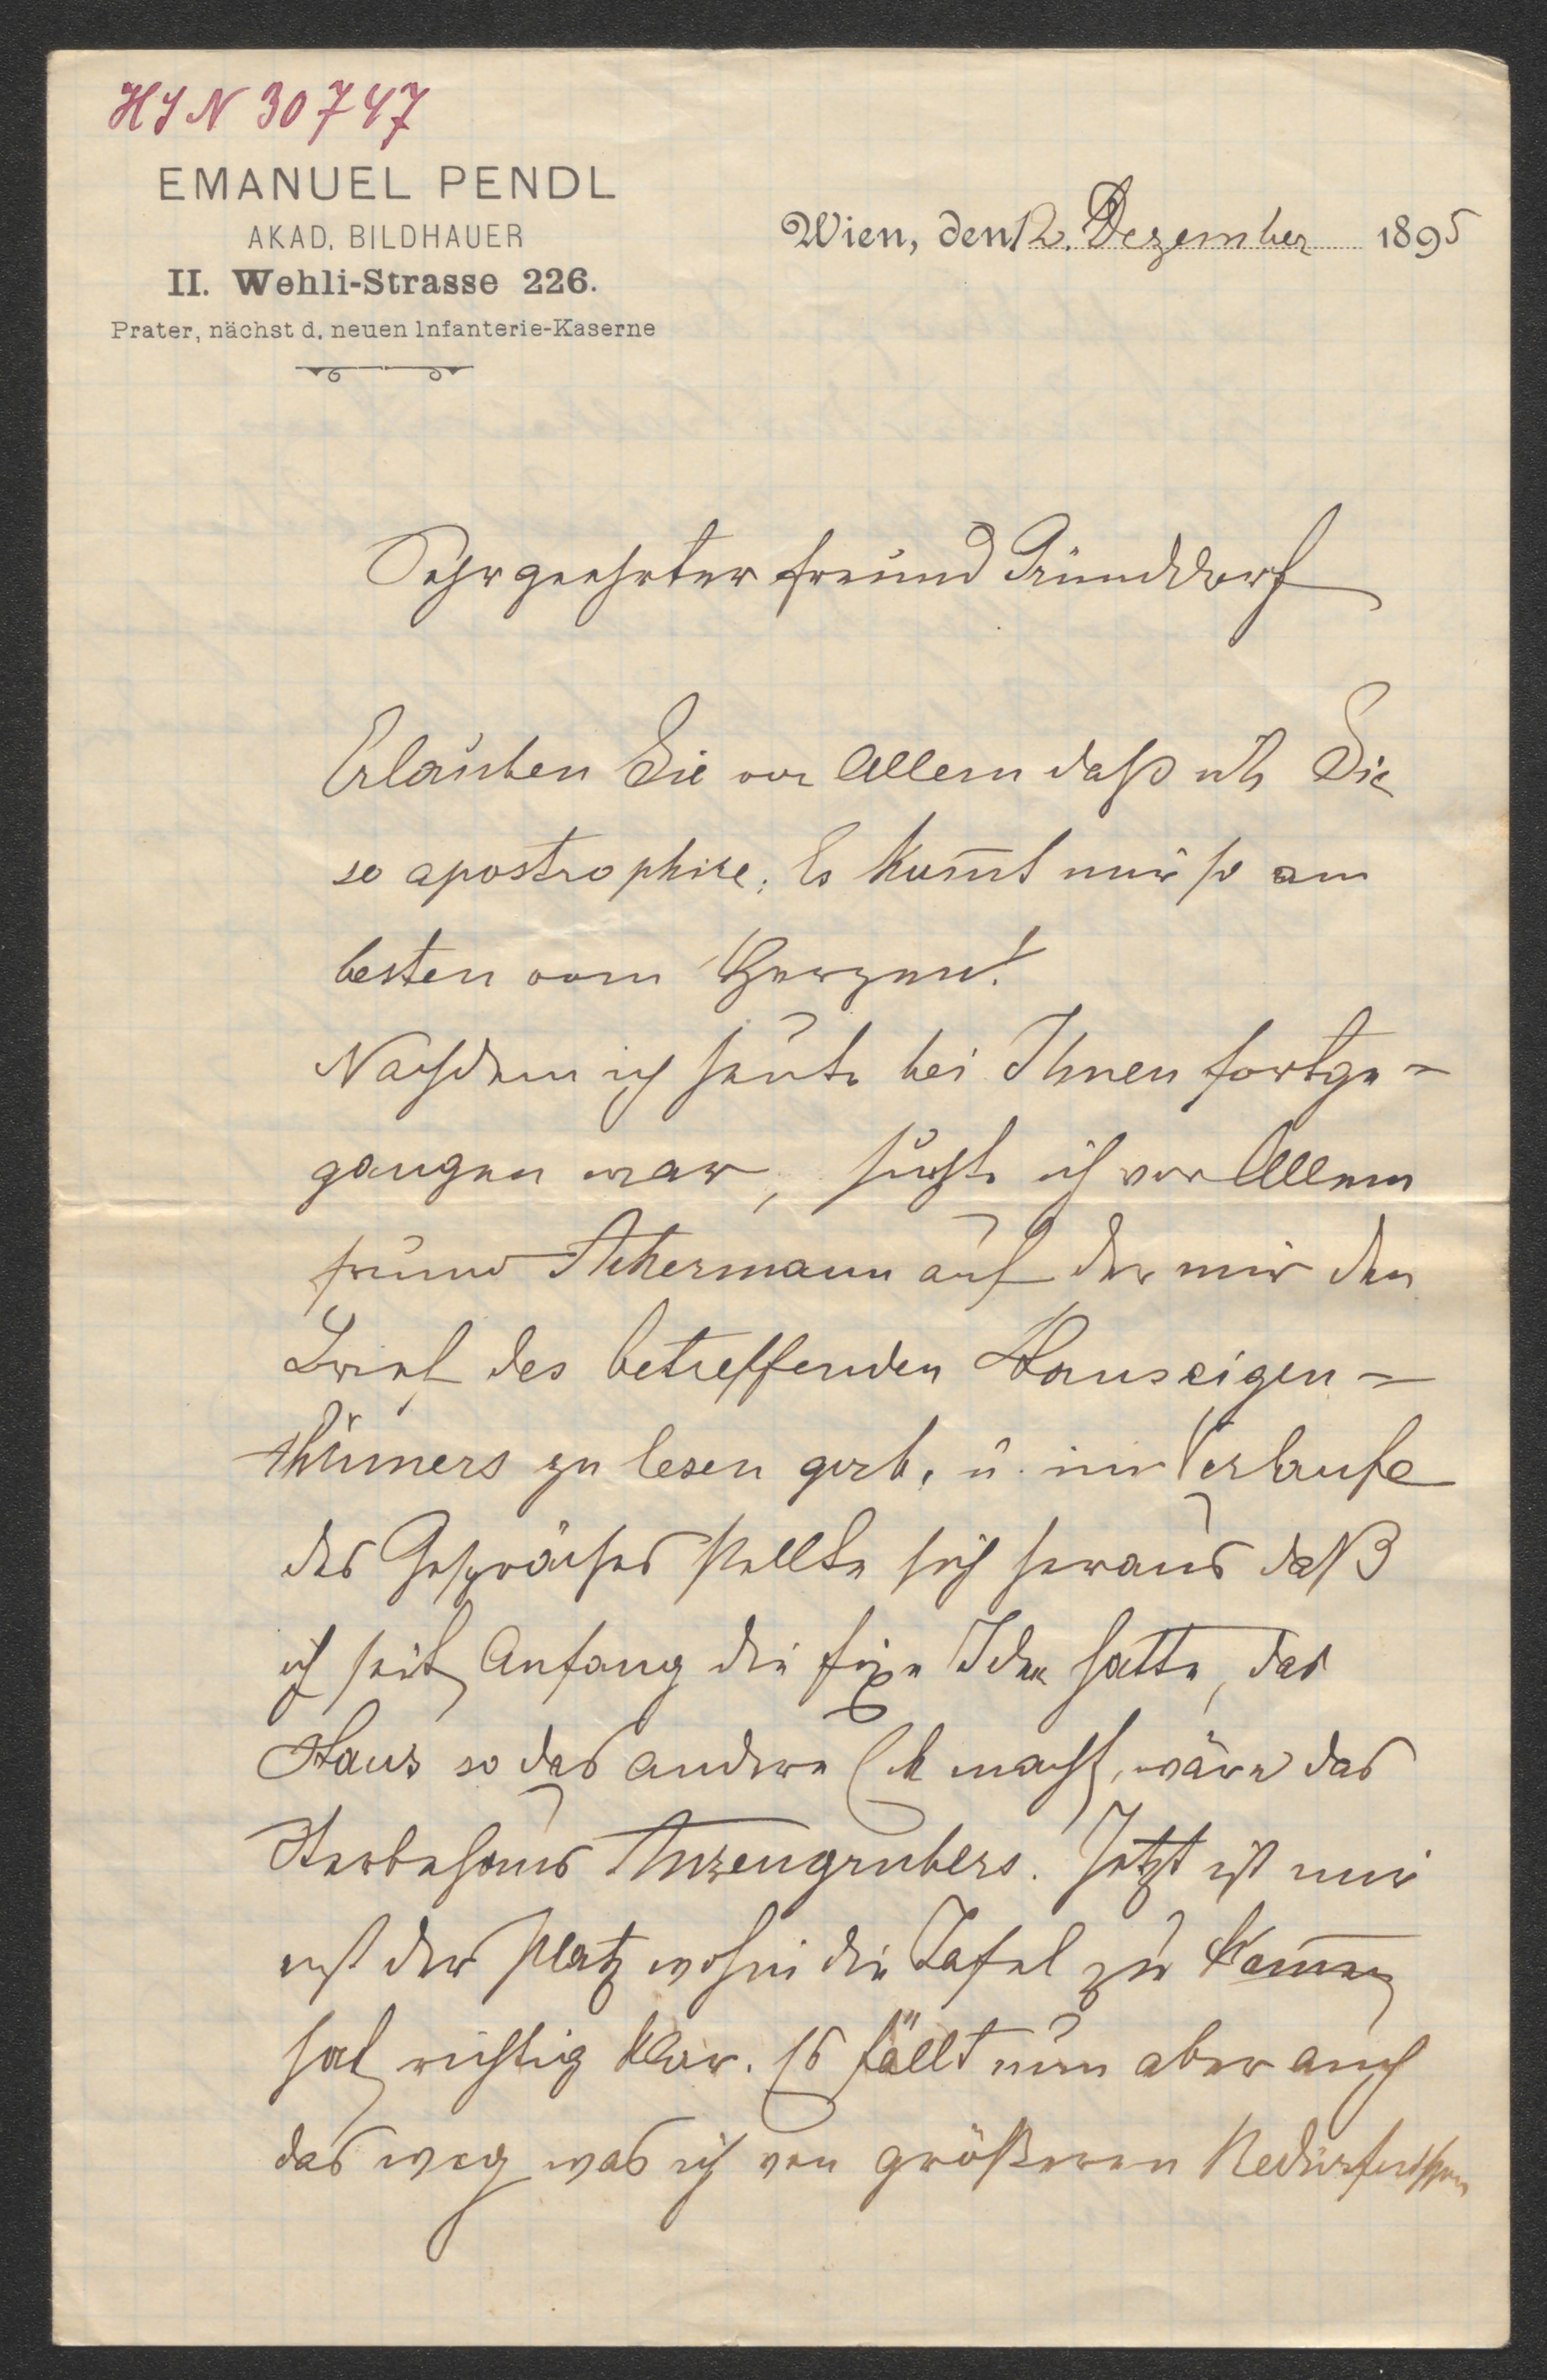 HIN 30747
EMANUEL PENDL
AKAD. BILDHAUER
II. Wehli-Strasse 226.
Prater, nächst d. neuen Infanterie-Kaserne
Wien, den 12. Dezember 1895
Sehr geehrter Freund Gründorf
Erlauben Sie vor Allem daß ich Sie
so apostrophire; Es kom̅t mir so am
besten vom Herzen!
Nachdem ich heute bei Ihnen fortge-
gangen war, suchte ich vor Allem
Freund Ackermann auf der mir den
Brief des betreffenden Hauseigen-
thümers zu lesen gab, u. im Verlaufe
des Gespräches stellte sich heraus daß
ich seit Anfang die fixe Idee hatte, das
Haus so das andere Eck macht, wäre das
Sterbehaus Anzengrubers. Jetzt ist mir
erst der Platz wohin die Tafel zu kom̅en
hat richtig klar. Es fällt nun aber auch
das weg was ich von größeren Bedürfnissen